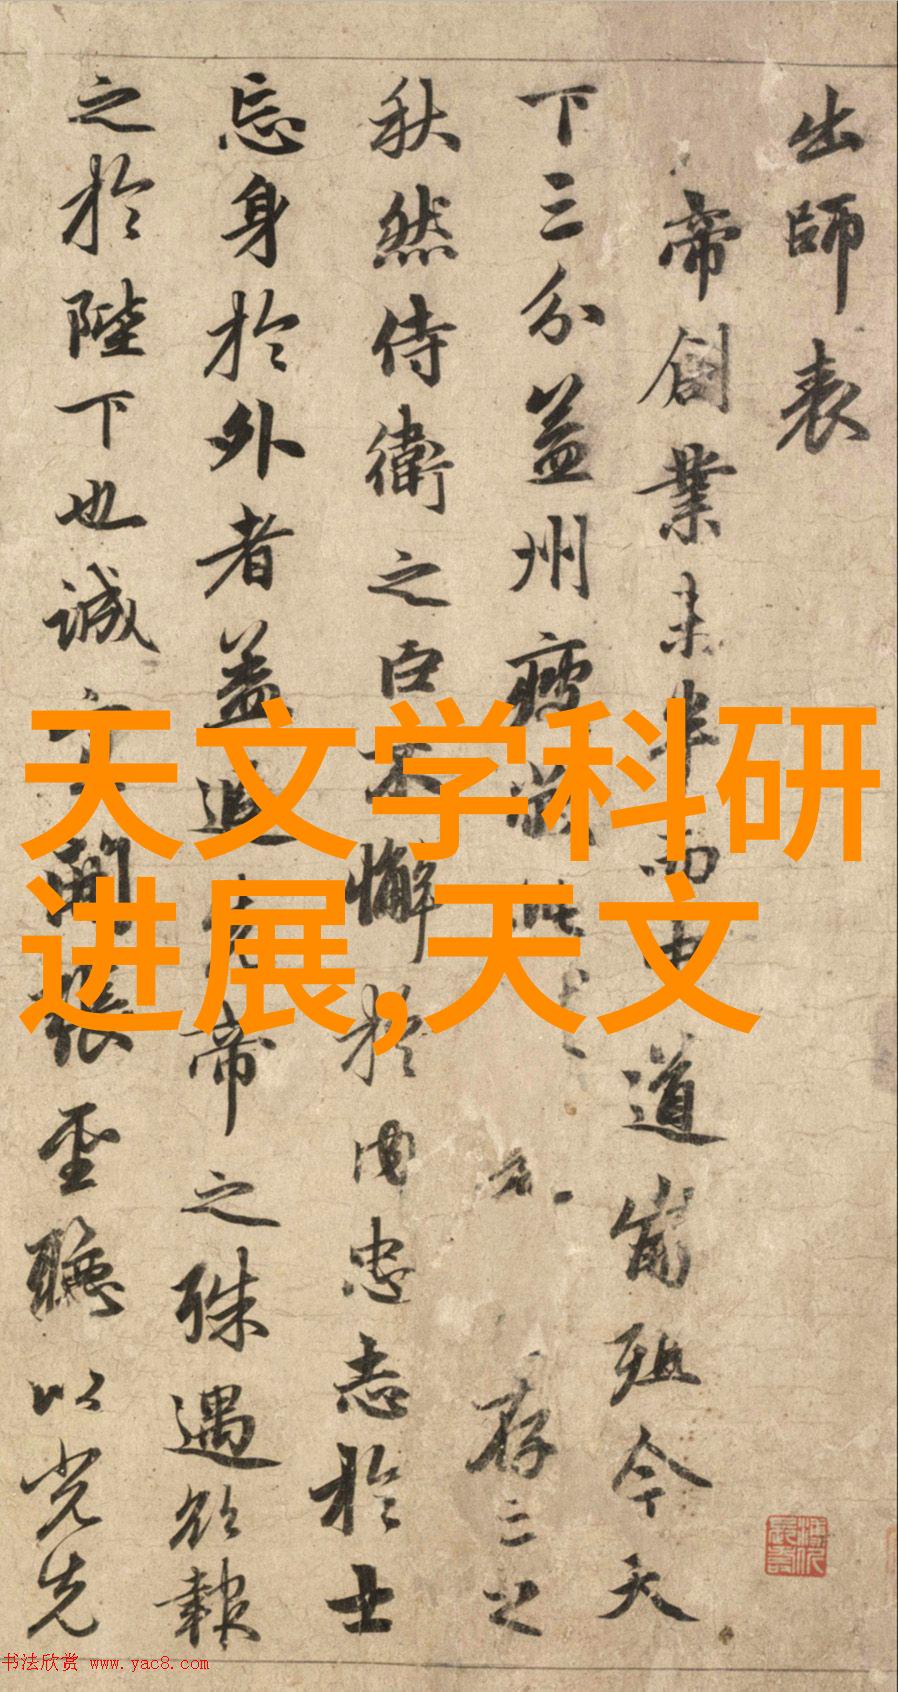 出師表
帝創業未半而中道崩殂今天
下三分益州疲弊此存之
秋然侍衛之臣不懈於内忠志於士
忘身於外者益追先帝之殊遇欲報
之於陛下也誠宜開張聖聽以光先
天文学科研
进展,天文
书法欣赏 www.yac8.com